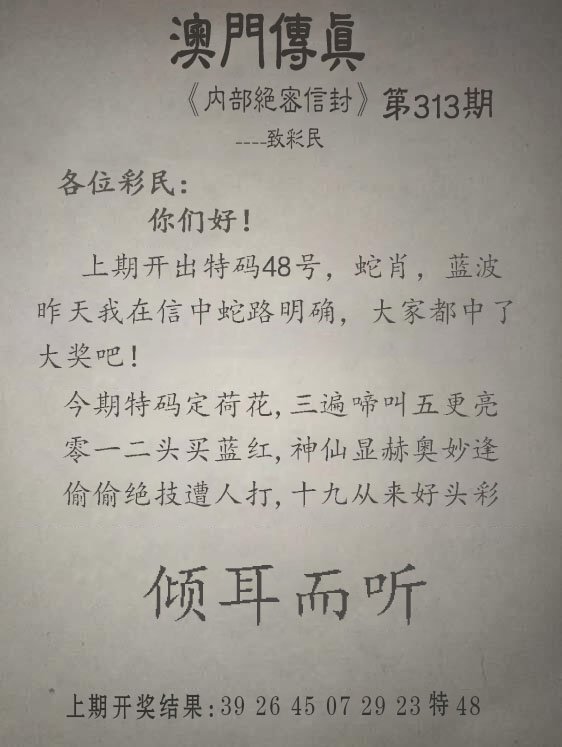 澳門傳眞
《内部絕密信封》第313期
----致彩民
各位彩民：
你们好！
上期开出特码48号，蛇肖，蓝波
昨天我在信中蛇路明确，大家都中了
大奖吧！
今期特码定荷花,三遍啼叫五更亮
零一二头买蓝红,神仙显赫奥妙逢
偷偷绝技遭人打,十九从来好头彩
倾耳而听
上期开奖结果:39 26 45 07 29 23 特 48